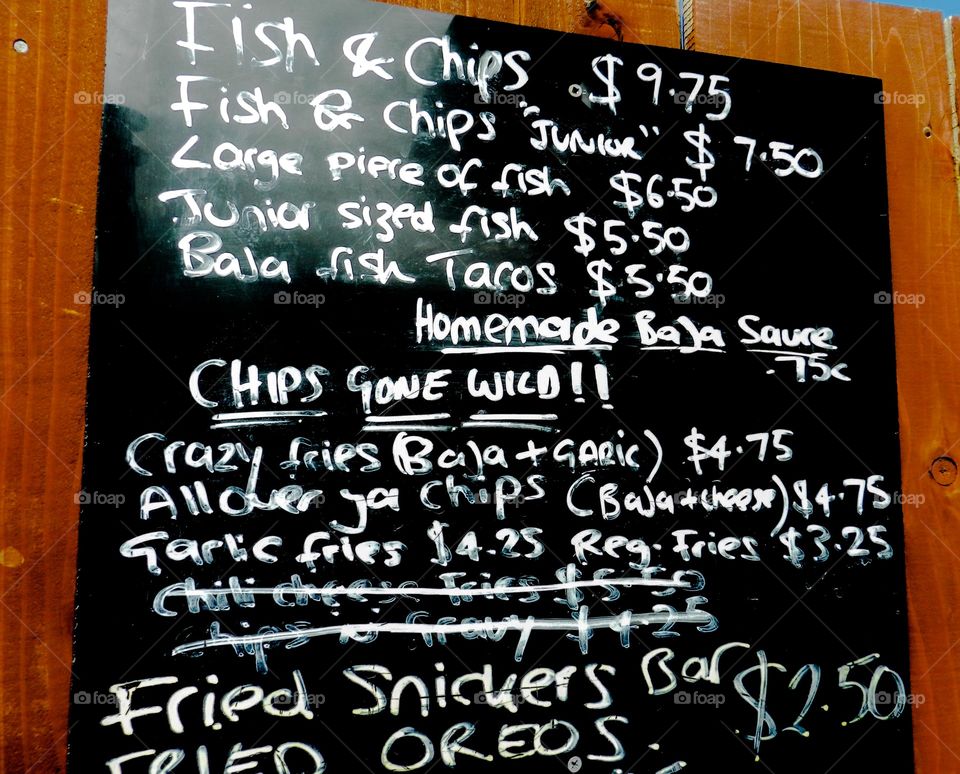 Fish & Chips $9.75
Fish & Chips "Junior" $7.50
Large piece of fish $6.50
Junior sized fish $5.50
Baja fish Tacos $5.50
Homemade Baja Sauce
.75c
CHIPS GONE WILD!!
Crazy fries (Baja + GARlic) $4.75
All over ya chips (Baja + cheese) $4.75
Garlic fries $4.25 Reg. Fries $3.25
Chili cheese Fries $5.50
Chips N Gravy $4.25
Fried Snickers Bar $2.50
FRIED OREOS.